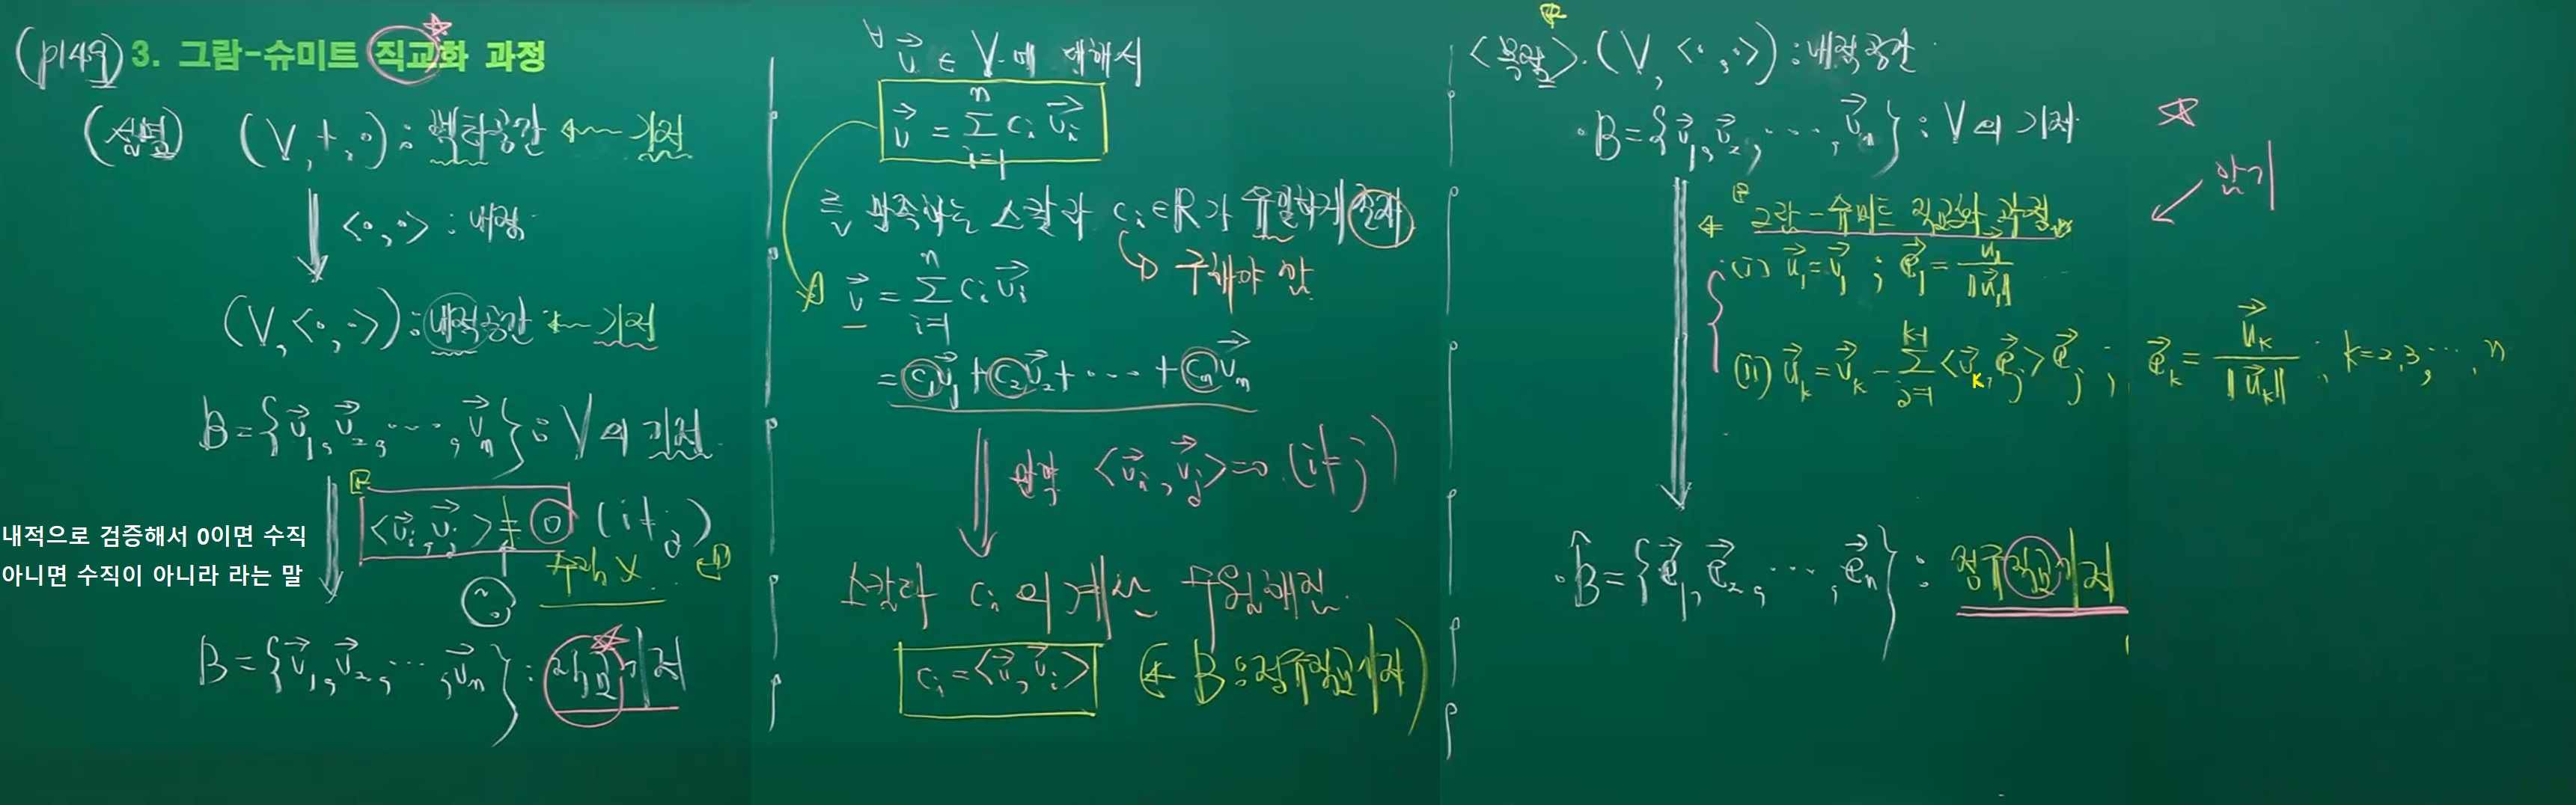 (p149) 3. 그람-슈미트 직교화 과정
(설명) (V, +, ·) : 벡터공간 ← 기저
<·, ·> : 내적
(V, <·, ·>) : 내적공간 ← 기저
B = {v⃗₁, v⃗₂, ⋯, v⃗ₙ} : V의 기저
<v⃗ᵢ, v⃗ⱼ> ≠ 0 (i ≠ j)
내적으로 검증해서 0이면 수직
아니면 수직이 아니라 라는 말
수직 X
B = {v⃗₁, v⃗₂, ⋯, v⃗ₙ} : 직교기저
∀ v⃗ ∈ V에 대해서
v⃗ = Σᵢ₌₁ⁿ cᵢ v⃗ᵢ
를 만족하는 스칼라 cᵢ ∈ R가 유일하게 존재
구해야 함
v⃗ = Σᵢ₌₁ⁿ cᵢ v⃗ᵢ
= c₁v⃗₁ + c₂v⃗₂ + ⋯ + cₙv⃗ₙ
만약 <v⃗ᵢ, v⃗ⱼ> = 0 (i ≠ j)
스칼라 cᵢ의 계산
cᵢ = <v⃗, v⃗ᵢ> (← B : 정규직교기저)
(V, <·, ·>) : 내적공간
· B = {v⃗₁, v⃗₂, ⋯, v⃗ₙ} : V의 기저
암기
← 그람-슈미트 직교화 과정
(i) u⃗₁ = v⃗₁ ; e⃗₁ = u⃗₁ / ‖u⃗₁‖
(ii) u⃗ₖ = v⃗ₖ - Σⱼ₌₁ᵏ⁻¹ <v⃗ₖ, e⃗ⱼ> e⃗ⱼ ; e⃗ₖ = u⃗ₖ / ‖u⃗ₖ‖ ; k = 2, 3, ⋯, n
· B̂ = {e⃗₁, e⃗₂, ⋯, e⃗ₙ} : 정규직교기저